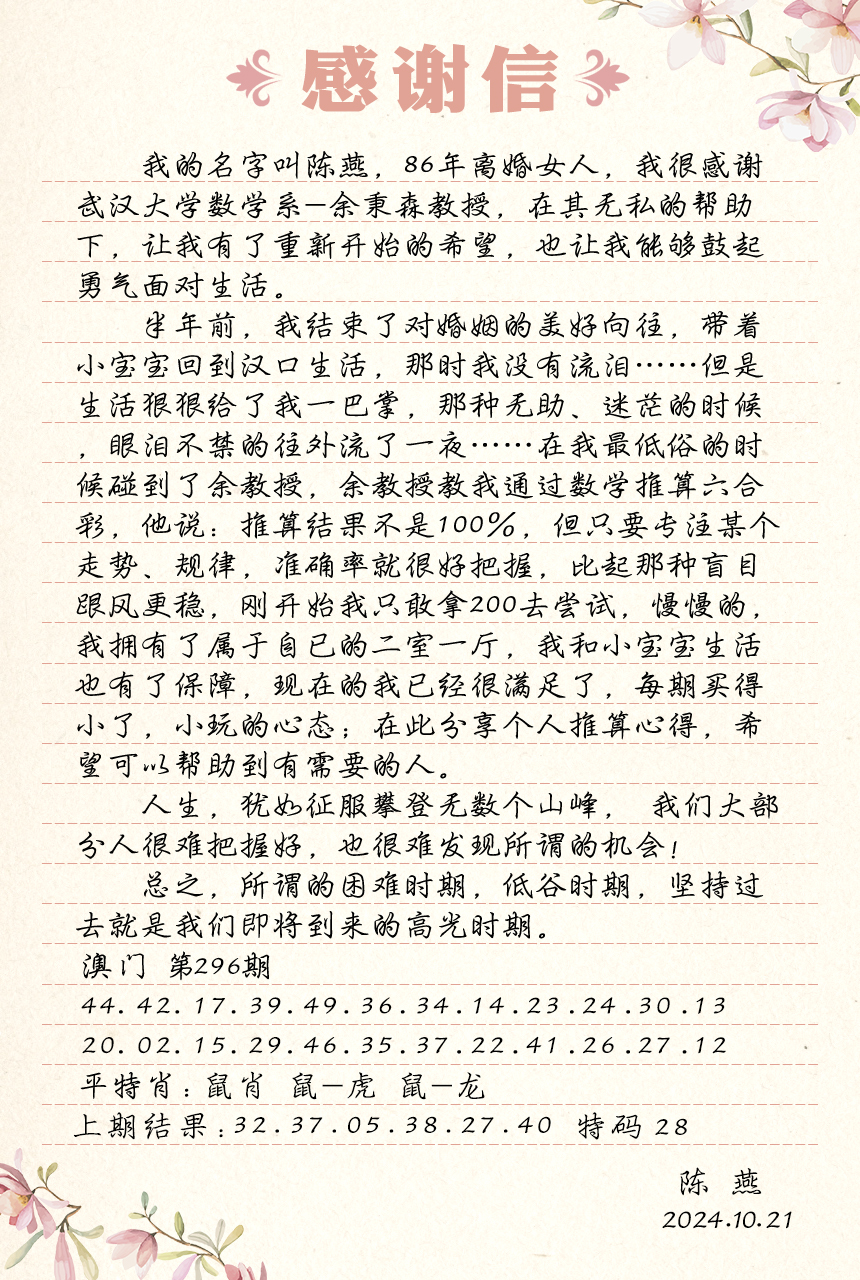 感谢信
我的名字叫陈燕，86年离婚女人，我很感谢
武汉大学数学系—余秉森教授，在其无私的帮助
下，让我有了重新开始的希望，也让我能够鼓起
勇气面对生活。
半年前，我结束了对婚姻的美好向往，带着
小宝宝回到汉口生活，那时我没有流泪……但是
生活狠狠给了我一巴掌，那种无助、迷茫的时候
，眼泪不禁的往外流了一夜……在我最低俗的时
候碰到了余教授，余教授教我通过数学推算六合
彩，他说：推算结果不是100%，但只要专注某个
走势、规律，准确率就很好把握，比起那种盲目
跟风更稳，刚开始我只敢拿200去尝试，慢慢的，
我拥有了属于自已的二室一厅，我和小宝宝生活
也有了保障，现在的我已经很满足了，每期买得
小了，小玩的心态；在此分享个人推算心得，希
望可以帮助到有需要的人。
人生，犹如征服攀登无数个山峰， 我们大部
分人很难把握好，也很难发现所谓的机会！
总之，所谓的困难时期，低谷时期，坚持过
去就是我们即将到来的高光时期。
澳门 第296期
44.42.17.39.49.36.34.14.23.24.30.13
20.02.15.29.46.35.37.22.41.26.27.12
平特肖：鼠肖 鼠—虎 鼠—龙
上期结果：32.37.05.38.27.40 特码 28
陈 燕
2024.10.21